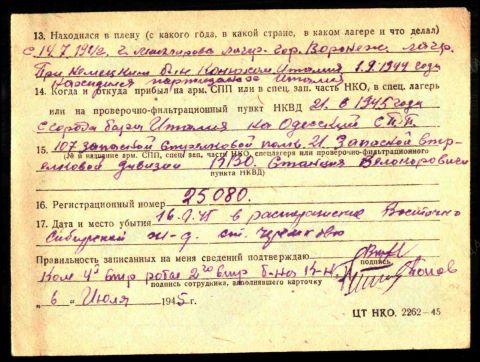 13. Находился в плену (с какого года, в какой стране, в каком лагере и что делал)
с 14.7.1942 г. лагер. гор. Воронеж. лагер.
При Немецким был Италия 1.9.1944 года
партизанов Италия
14. Когда и откуда прибыл на арм. СПП или в спец. зап. часть НКО, в спец. лагерь
или на проверочно-фильтрационный пункт НКВД 21.6 1945 года
с города Бари Италия на Одеский СПП
15. 107 запасной стрелковой полк. 21. Запасной стр-
(№ и название арм. СПП, спец. зап. части НКО, спецлагеря или проверочно-фильтрационного
елковой дивизии Станция Белокоровичи
пункта НКВД)
16. Регистрационный номер 25080.
17. Дата и место убытия 16.9.45 в распоряжение Восточно
Сибирской ж-д. ст. Черемхово
Правильность записанных на меня сведений подтверждаю
подпись
Ком 4й стр роты 2го стр б-на
подпись сотрудника, заполнявшего карточку
„6„ Июля 1945 г.
ЦТ НКО. 2262–45